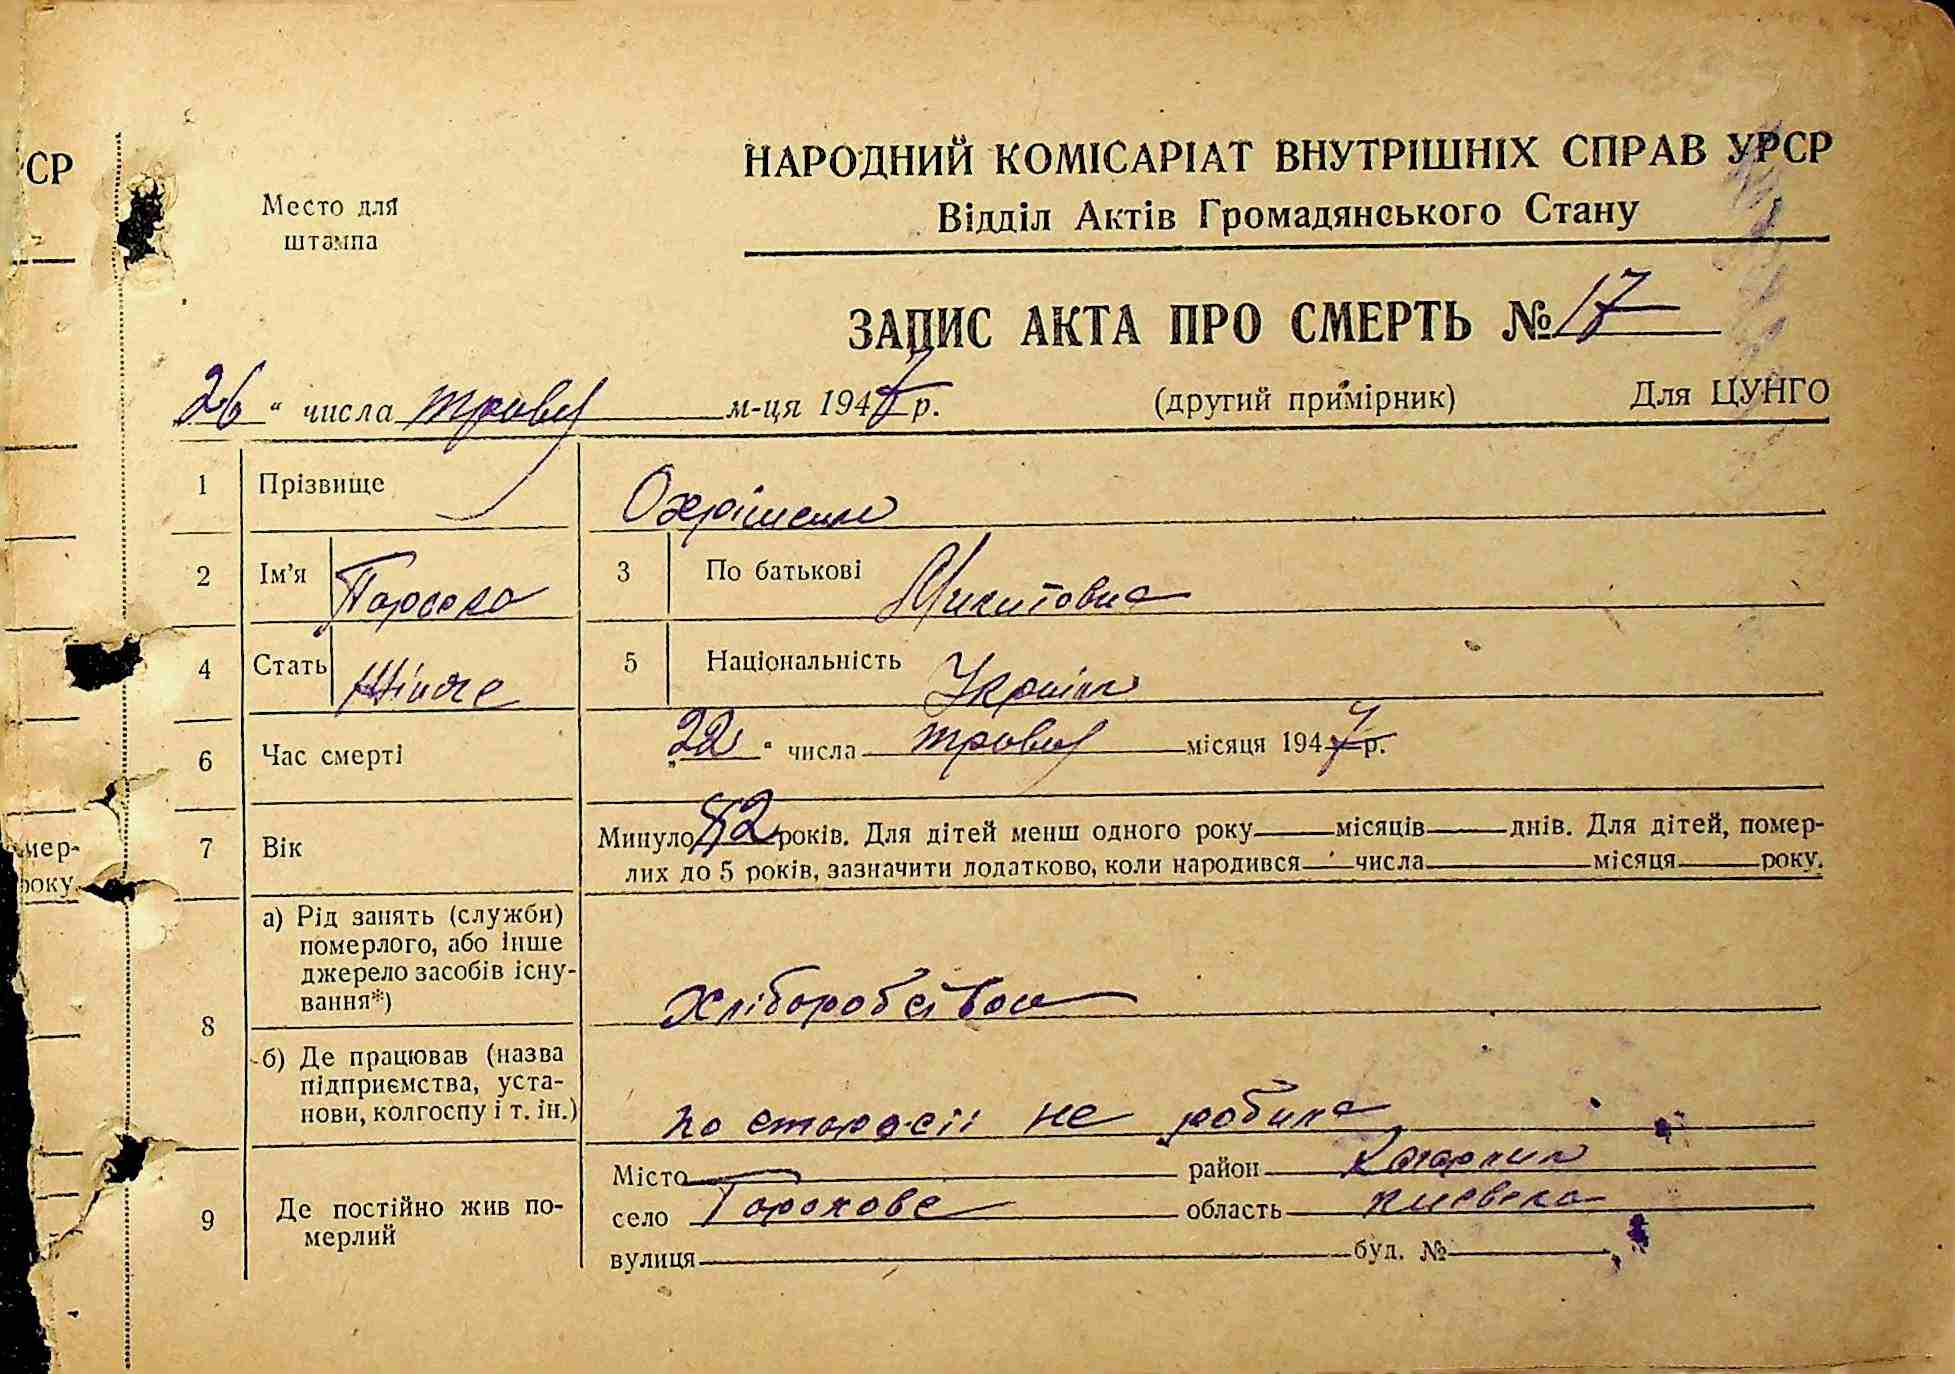 СР
Место для
штампа
НАРОДНИЙ КОМІСАРІАТ ВНУТРІШНІХ СПРАВ УРСР
Відділ Актів Громадянського Стану
ЗАПИС АКТА ПРО СМЕРТЬ № 17
26 " числа травня м-ця 1947 р. (другий примірник) Для ЦУНГО
1 Прізвище
2 Ім'я Параска 3 По батькові Микитовна
4 Стать Жіноче 5 Національність Українка
6 Час смерті „22 " числа травня місяця 1947 р.
7 Вік Минуло 82 років. Для дітей менш одного року — місяців — днів. Для дітей, помер-
лих до 5 років, зазначити додатково, коли народився — числа — місяця — року.
мер-
року
8 а) Рід занять (служби)
померлого, або інше
джерело засобів існу-
вання*) Хліборобство
б) Де працював (назва
підприємства, уста-
нови, колгоспу і т. ін.) по старості не робила
9 Де постійно жив по-
мерлий
Місто — район Кагарлик
село Горохове область Києвська
вулиця — буд. № —